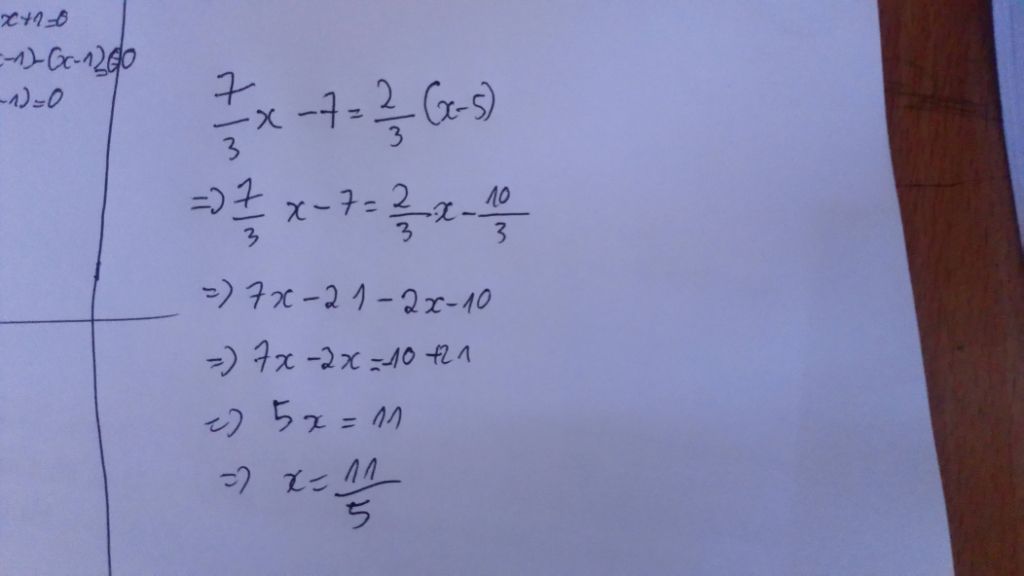 x+1=0
-1)-(x-1)
-1)=0
7/3 x - 7 = 2/3 (x-5)
=> 7/3 x - 7 = 2/3 x - 10/3
=> 7x - 21 - 2x - 10
=> 7x - 2x = -10 + 21
=> 5x = 11
=> x = 11/5